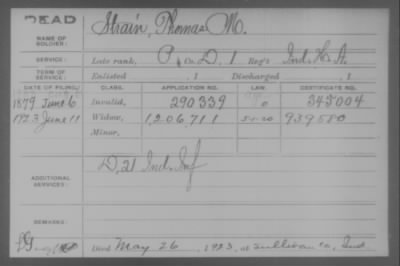 DEAD
NAME OF SOLDIER: Strain, Thomas M.
SERVICE: Late rank, P, Co. D, 1 Reg't Ind. H. A.
TERM OF SERVICE: Enlisted , 1 Discharged , 1
DATE OF FILING. CLASS. APPLICATION NO. LAW CERTIFICATE NO.
1879 June 6 Invalid, 290339 345004
1923 June 11 Widow, 1206711 5-1-20 939580
Minor,
ADDITIONAL SERVICES: D, 21 Ind. Inf
REMARKS:
Died May 26, 1923, at Sullivan Co, Ind